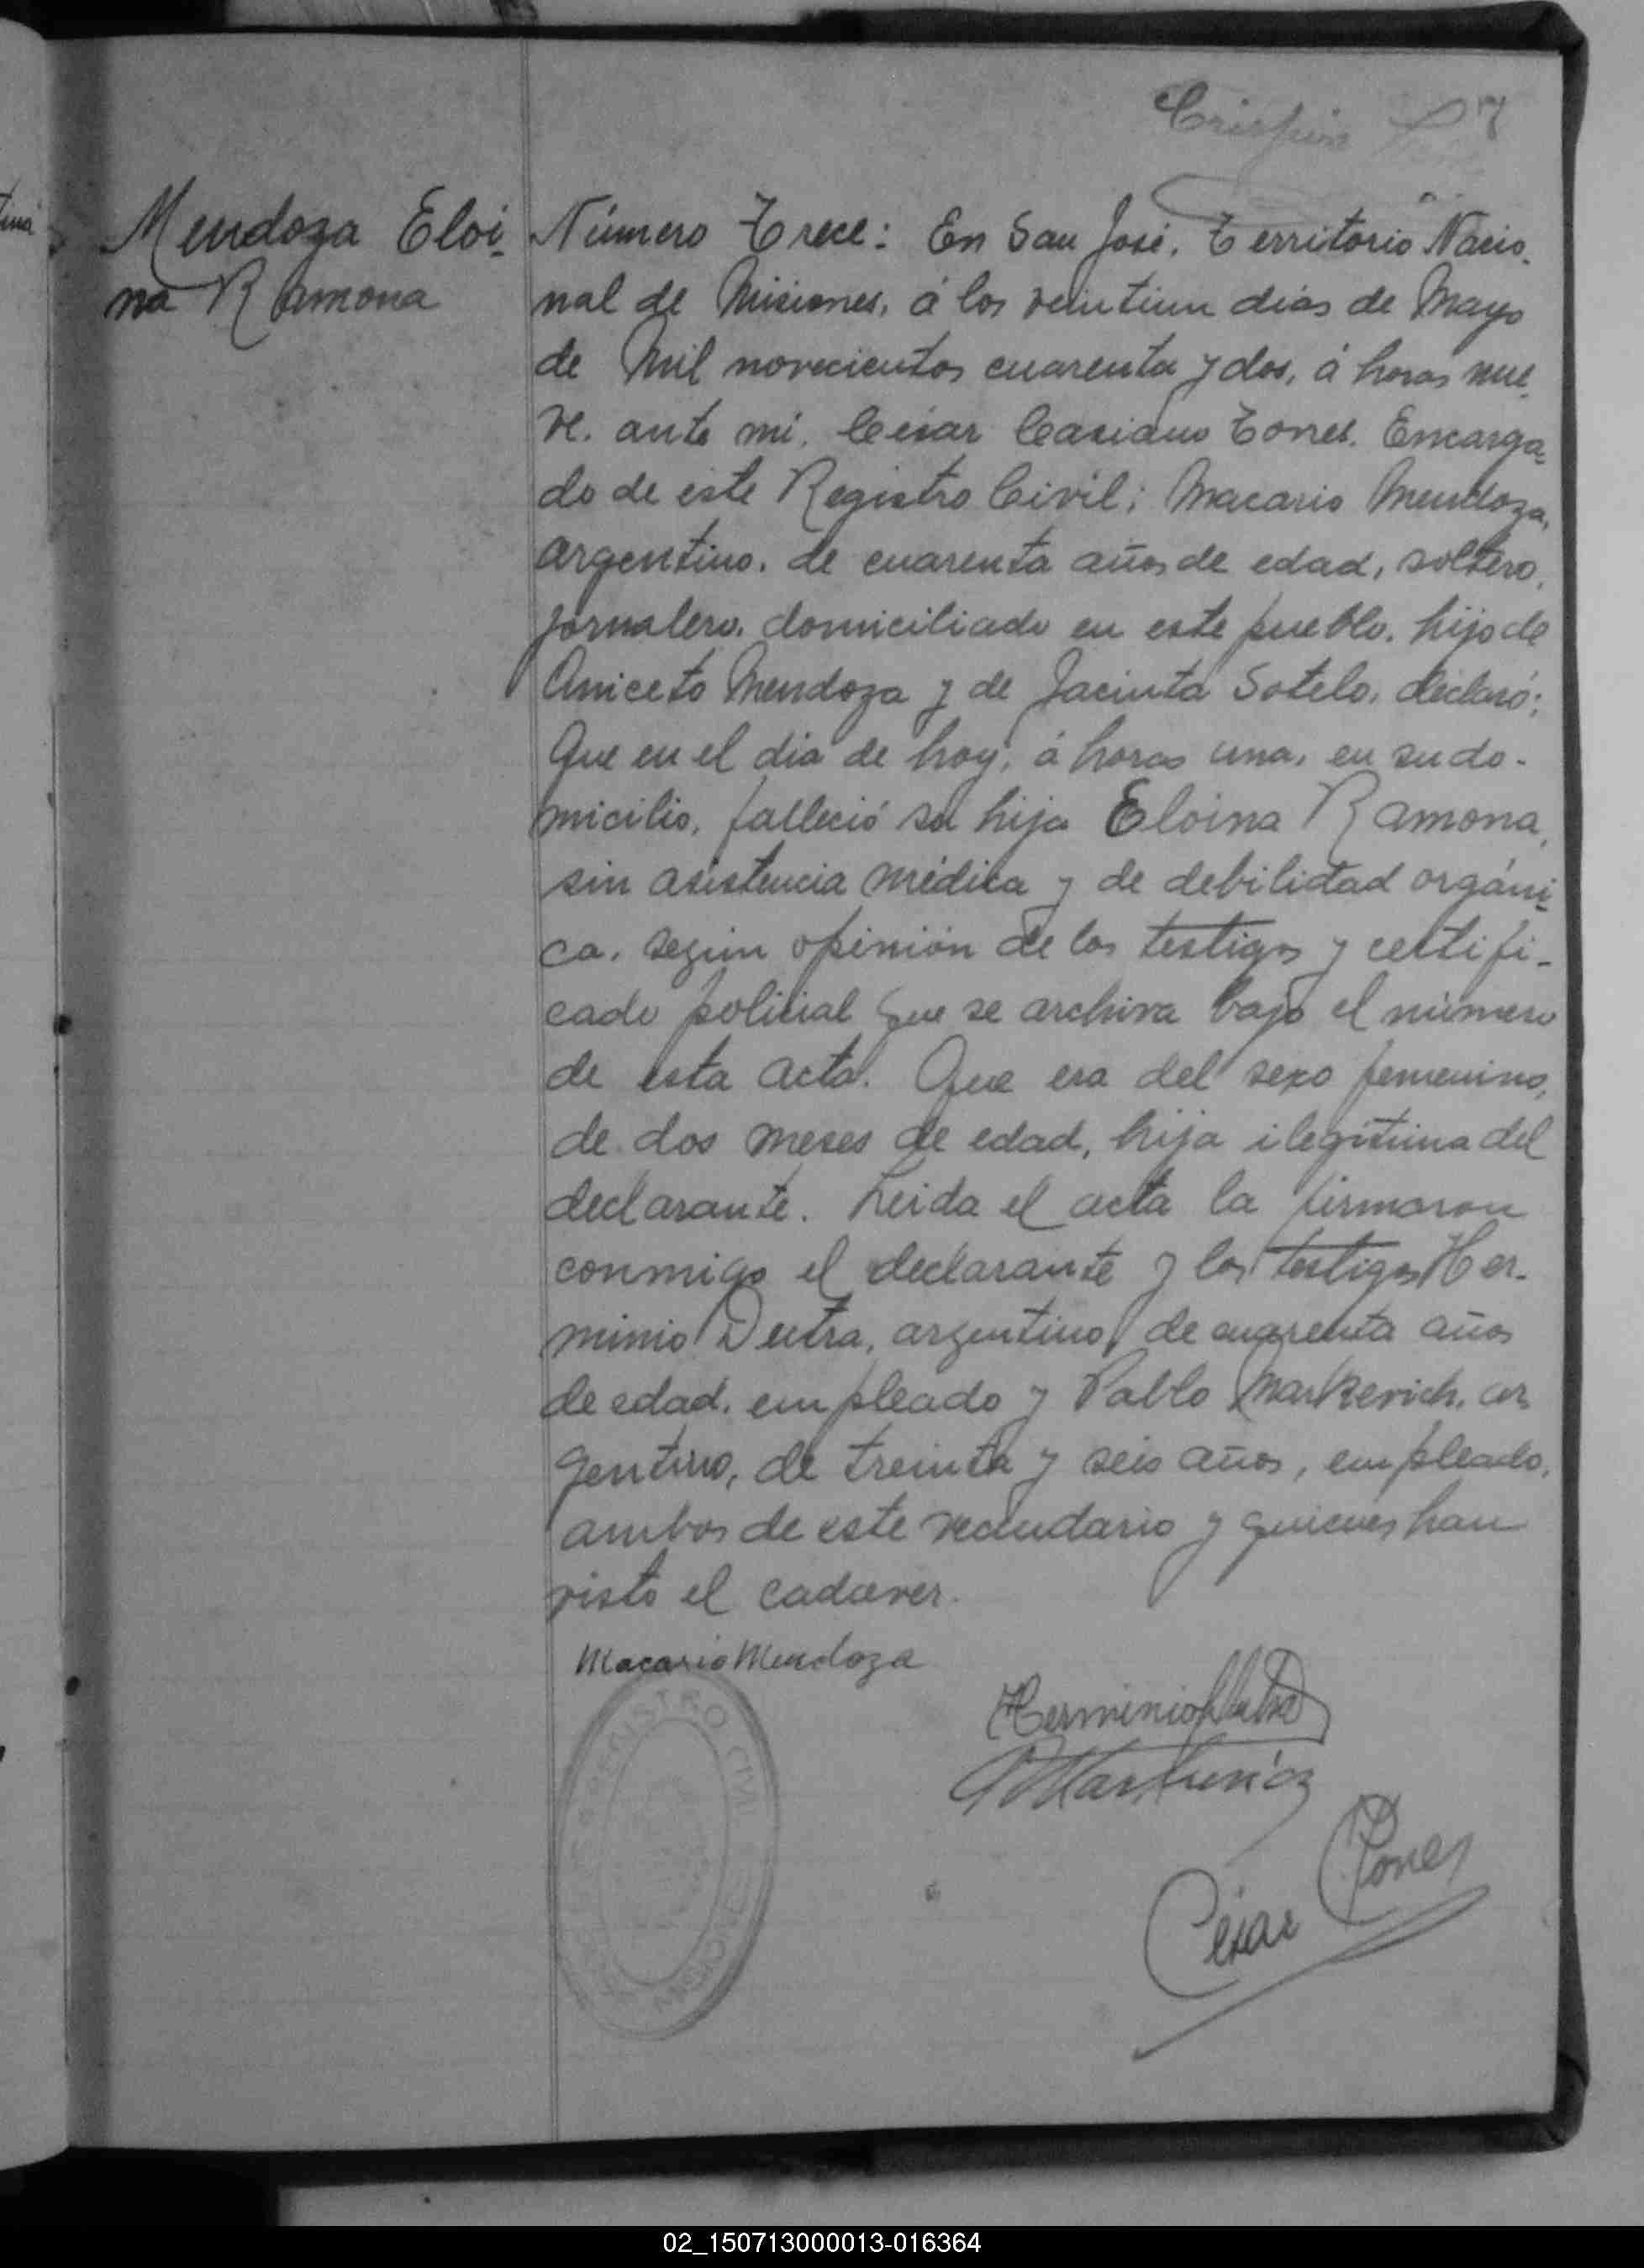 Crispin 7
Mendoza Eloi-
na Ramona
Número Trece: En San José, Territorio Nacio-
nal de Misiones, á los veintiun dias de Mayo
de Mil novecientos cuarenta y dos, á horas nue-
ve. ante mi, César Casiano Torres. Encarga-
do de este Registro Civil; Macario Mendoza,
argentino, de cuarenta años de edad, soltero,
jornalero, domiciliado en este pueblo, hijo de
Aniceto Mendoza y de Jacinta Sotelo, declaró:
Que en el dia de hoy, á horas una, en su do-
micilio, falleció su hija Eloina Ramona,
sin asistencia médica y de debilidad orgáni-
ca, según opinión de los testigos y certifi-
cado policial que se archiva bajo el número
de esta acta. Que era del sexo femenino,
de dos meses de edad, hija ilegítima del
declarante. Leida el acta la firmaron
conmigo el declarante y los testigos Her-
minio Dutra, argentino, de cuarenta años
de edad, empleado y Pablo Markevich, ar
gentino, de treinta y seis años, empleado,
ambos de este vecindario y quienes han
visto el cadaver.
Macario Mendoza
Herminio Dutra
César Torres
REGISTRO CIVIL
MISIONES
02_150713000013-016364